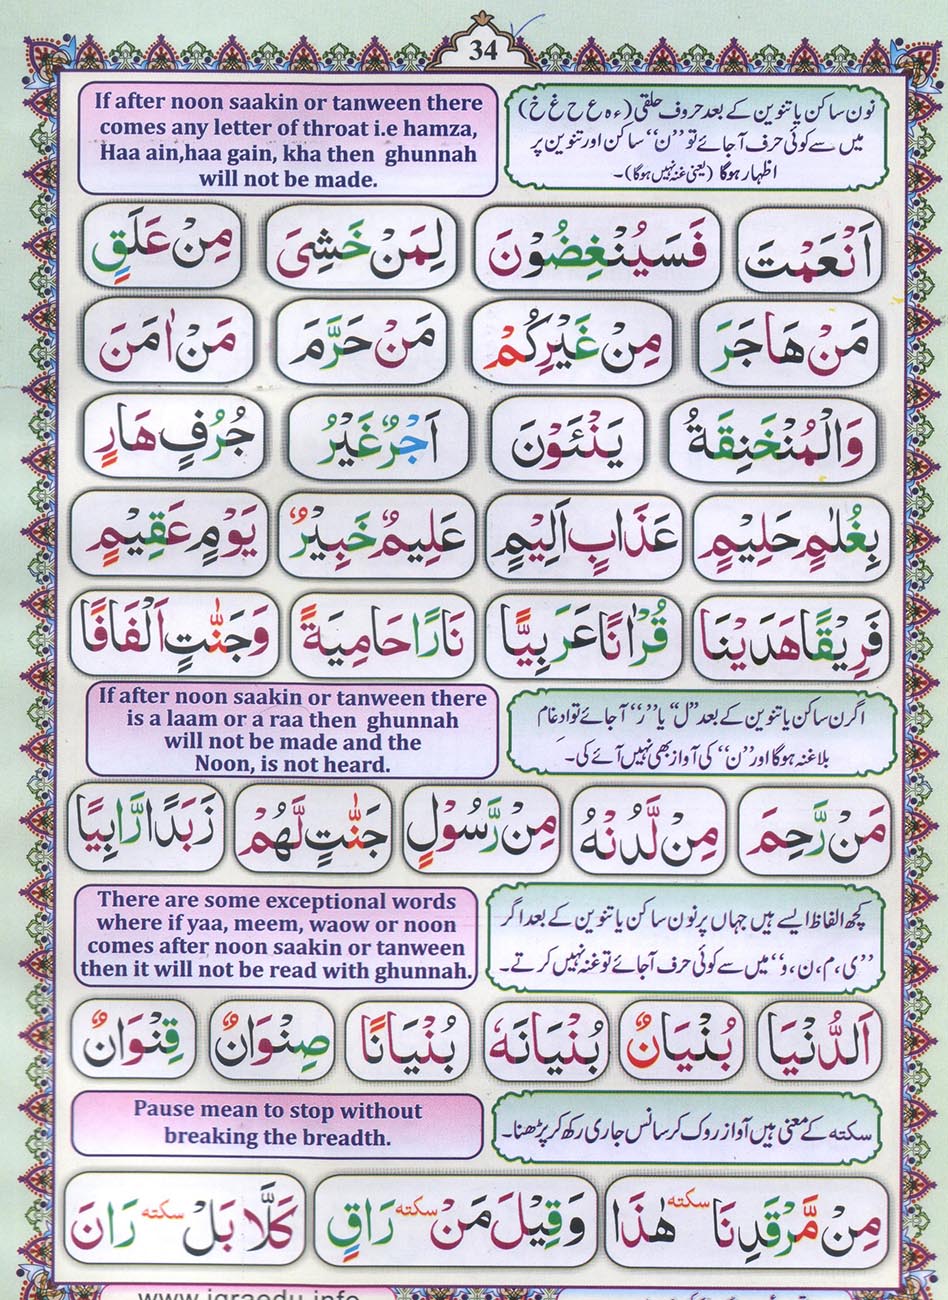 34
If after noon saakin or tanween there
comes any letter of throat i.e hamza,
Haa ain,haa gain, kha then ghunnah
will not be made.
نون ساکن یا تنوین کے بعد حروف حلقی (ء ہ ع ح غ خ)
میں سے کوئی حرف آجائے تو ”ن“ ساکن اور تنوین پر
اظہار ہوگا (یعنی غنہ نہیں ہوگا)۔
اَنْعَمْتَ فَسَيُنْغِضُوْنَ لِمَنْ خَشِىَ مِنْ عَلَقٍ
مَنْ هَاجَرَ مِنْ غَيْرِكُمْ مَنْ حَرَّمَ مَنْ اٰمَنَ
وَالْمُنْخَنِقَةُ يَنْئَوْنَ اَجْرٌ غَيْرُ جُرُفٍ هَارٍ
بِغُلٰمٍ حَلِيْمٍ عَذَابٍ اَلِيْمٍ عَلِيْمٌ خَبِيْرٌ يَوْمٍ عَقِيْمٍ
فَرِيْقًا هَدَيْنَا قُرْاٰنًا عَرَبِيًّا نَارًا حَامِيَةً وَجَنّٰتٍ اَلْفَافًا
If after noon saakin or tanween there
is a laam or a raa then ghunnah
will not be made and the
Noon, is not heard.
اگرن ساکن یا تنوین کے بعد ”ل“ یا ”ر“ آجائے تو ادغام
بلا غنہ ہوگا اور ”ن“ کی آواز بھی نہیں آئے گی۔
مَنْ رَّحِمَ مِنْ لَّدُنْهُ مِنْ رَّسُوْلٍ جَنّٰتٍ لَّهُمْ زَبَدًا رَّابِيًا
There are some exceptional words
where if yaa, meem, waow or noon
comes after noon saakin or tanween
then it will not be read with ghunnah.
کچھ الفاظ ایسے ہیں جہاں پر نون ساکن یا تنوین کے بعد اگر
”ی، م، ن، و“ میں سے کوئی حرف آجائے تو غنہ نہیں کرتے۔
اَلدُّنْيَا بُنْيَانٌ بُنْيَانَهٗ بُنْيَانًا صِنْوَانٌ قِنْوَانٌ
Pause mean to stop without
breaking the breadth.
سکتہ کے معنی ہیں آواز روک کر سانس جاری رکھ کر پڑھنا۔
مِنْ مَّرْقَدِنَا سکتہ هٰذَا وَقِيْلَ مَنْ سکتہ رَاقٍ كَلَّا بَلْ سکتہ رَانَ
www.iqraedu.info